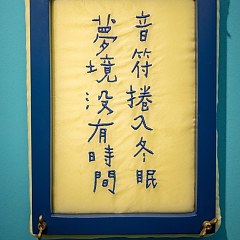 音符捲入冬眠
夢境沒有時間